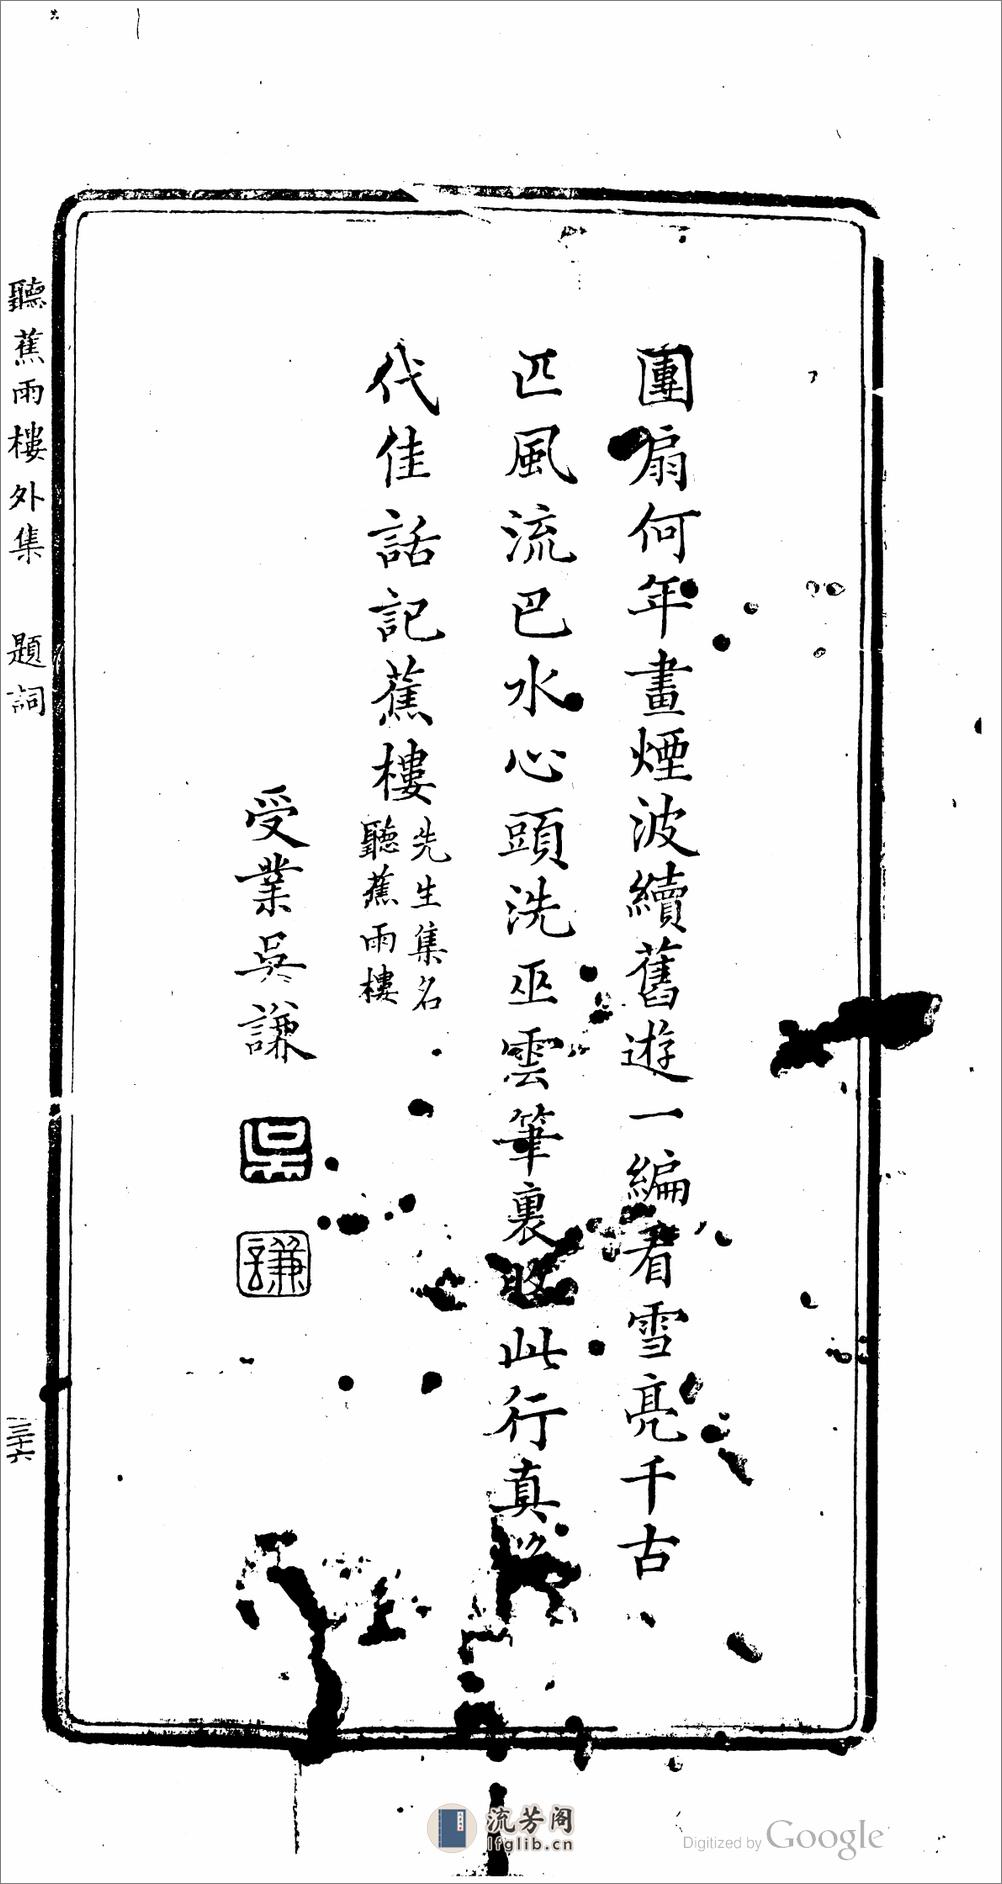 團扇何年畫煙波續舊遊一編看雪亮千古
匹風流巴水心頭洗巫雲筆裏收此行真
代佳話記蕉樓
先生集名
聽蕉雨樓
受業吳謙
吳
謙
聽蕉雨樓外集 題詞
三十六
流芳阁
lfglib.cn
Digitized by Google